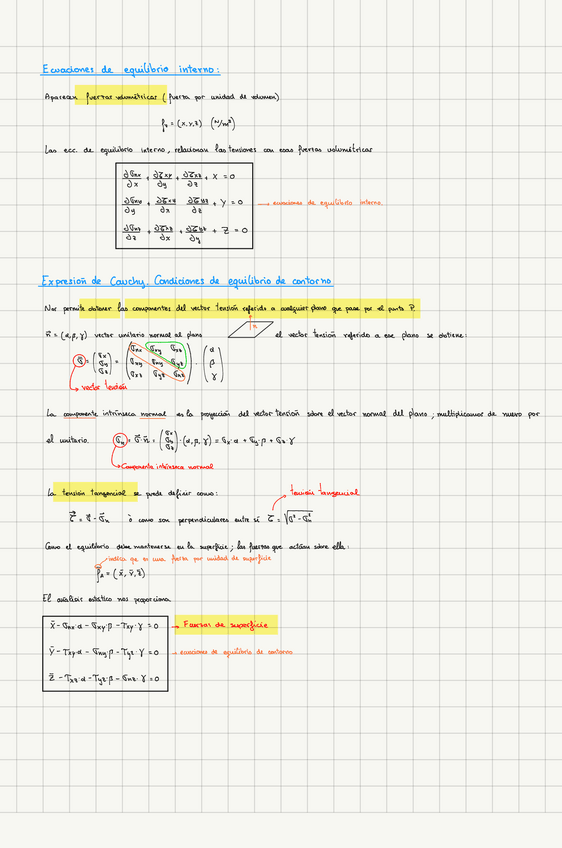 Ecuaciones de equilibrio interno:
Aparecen fuerzas volumétricas (fuerza por unidad de volumen)
fᵥ = (x, y, z) (N/m³)
Las ecc. de equilibrio interno, relacionan las tensiones con esas fuerzas volumétricas
∂σnx/∂x + ∂τxy/∂y + ∂τxz/∂z + X = 0
→ ecuaciones de equilibrio interno.
+ Y = 0
+ Z = 0
Expresión de Cauchy. Condiciones de equilibrio de contorno
Nos permite obtener las componentes del vector tensión referido a cualquier plano que pase por el punto P.
n⃗ = (α, β, γ) vector unitario normal al plano el vector tensión referido a ese plano se obtiene:
vector tensión
La componente intrínseca normal es la proyección del vector tensión sobre el vector normal del plano, multiplicamos de nuevo por
el unitario. σn = σ⃗·n⃗ = (σx σy σz) · (α, β, γ) = σx·α + σy·β + σz·γ
Componente intrínseca normal
La tensión tangencial se puede definir como:
tensión tangencial
τ⃗ = σ⃗ - σ⃗n ò como son perpendiculares entre sí τ = √(σ² - σn²)
Como el equilibrio debe mantenerse en la superficie; las fuerzas que actúan sobre ella:
indica que es una fuerza por unidad de superficie
= (x̄, ȳ, z̄)
El análisis estático nos proporciona
x̄ - σnx·α - σxy·β - τxy·γ = 0 → Fuerzas de superficie
ȳ - τxy·α - σny·β - τyz·γ = 0 → ecuaciones de equilibrio de contorno
z̄ - τxz·α - τyz·β - σnz·γ = 0